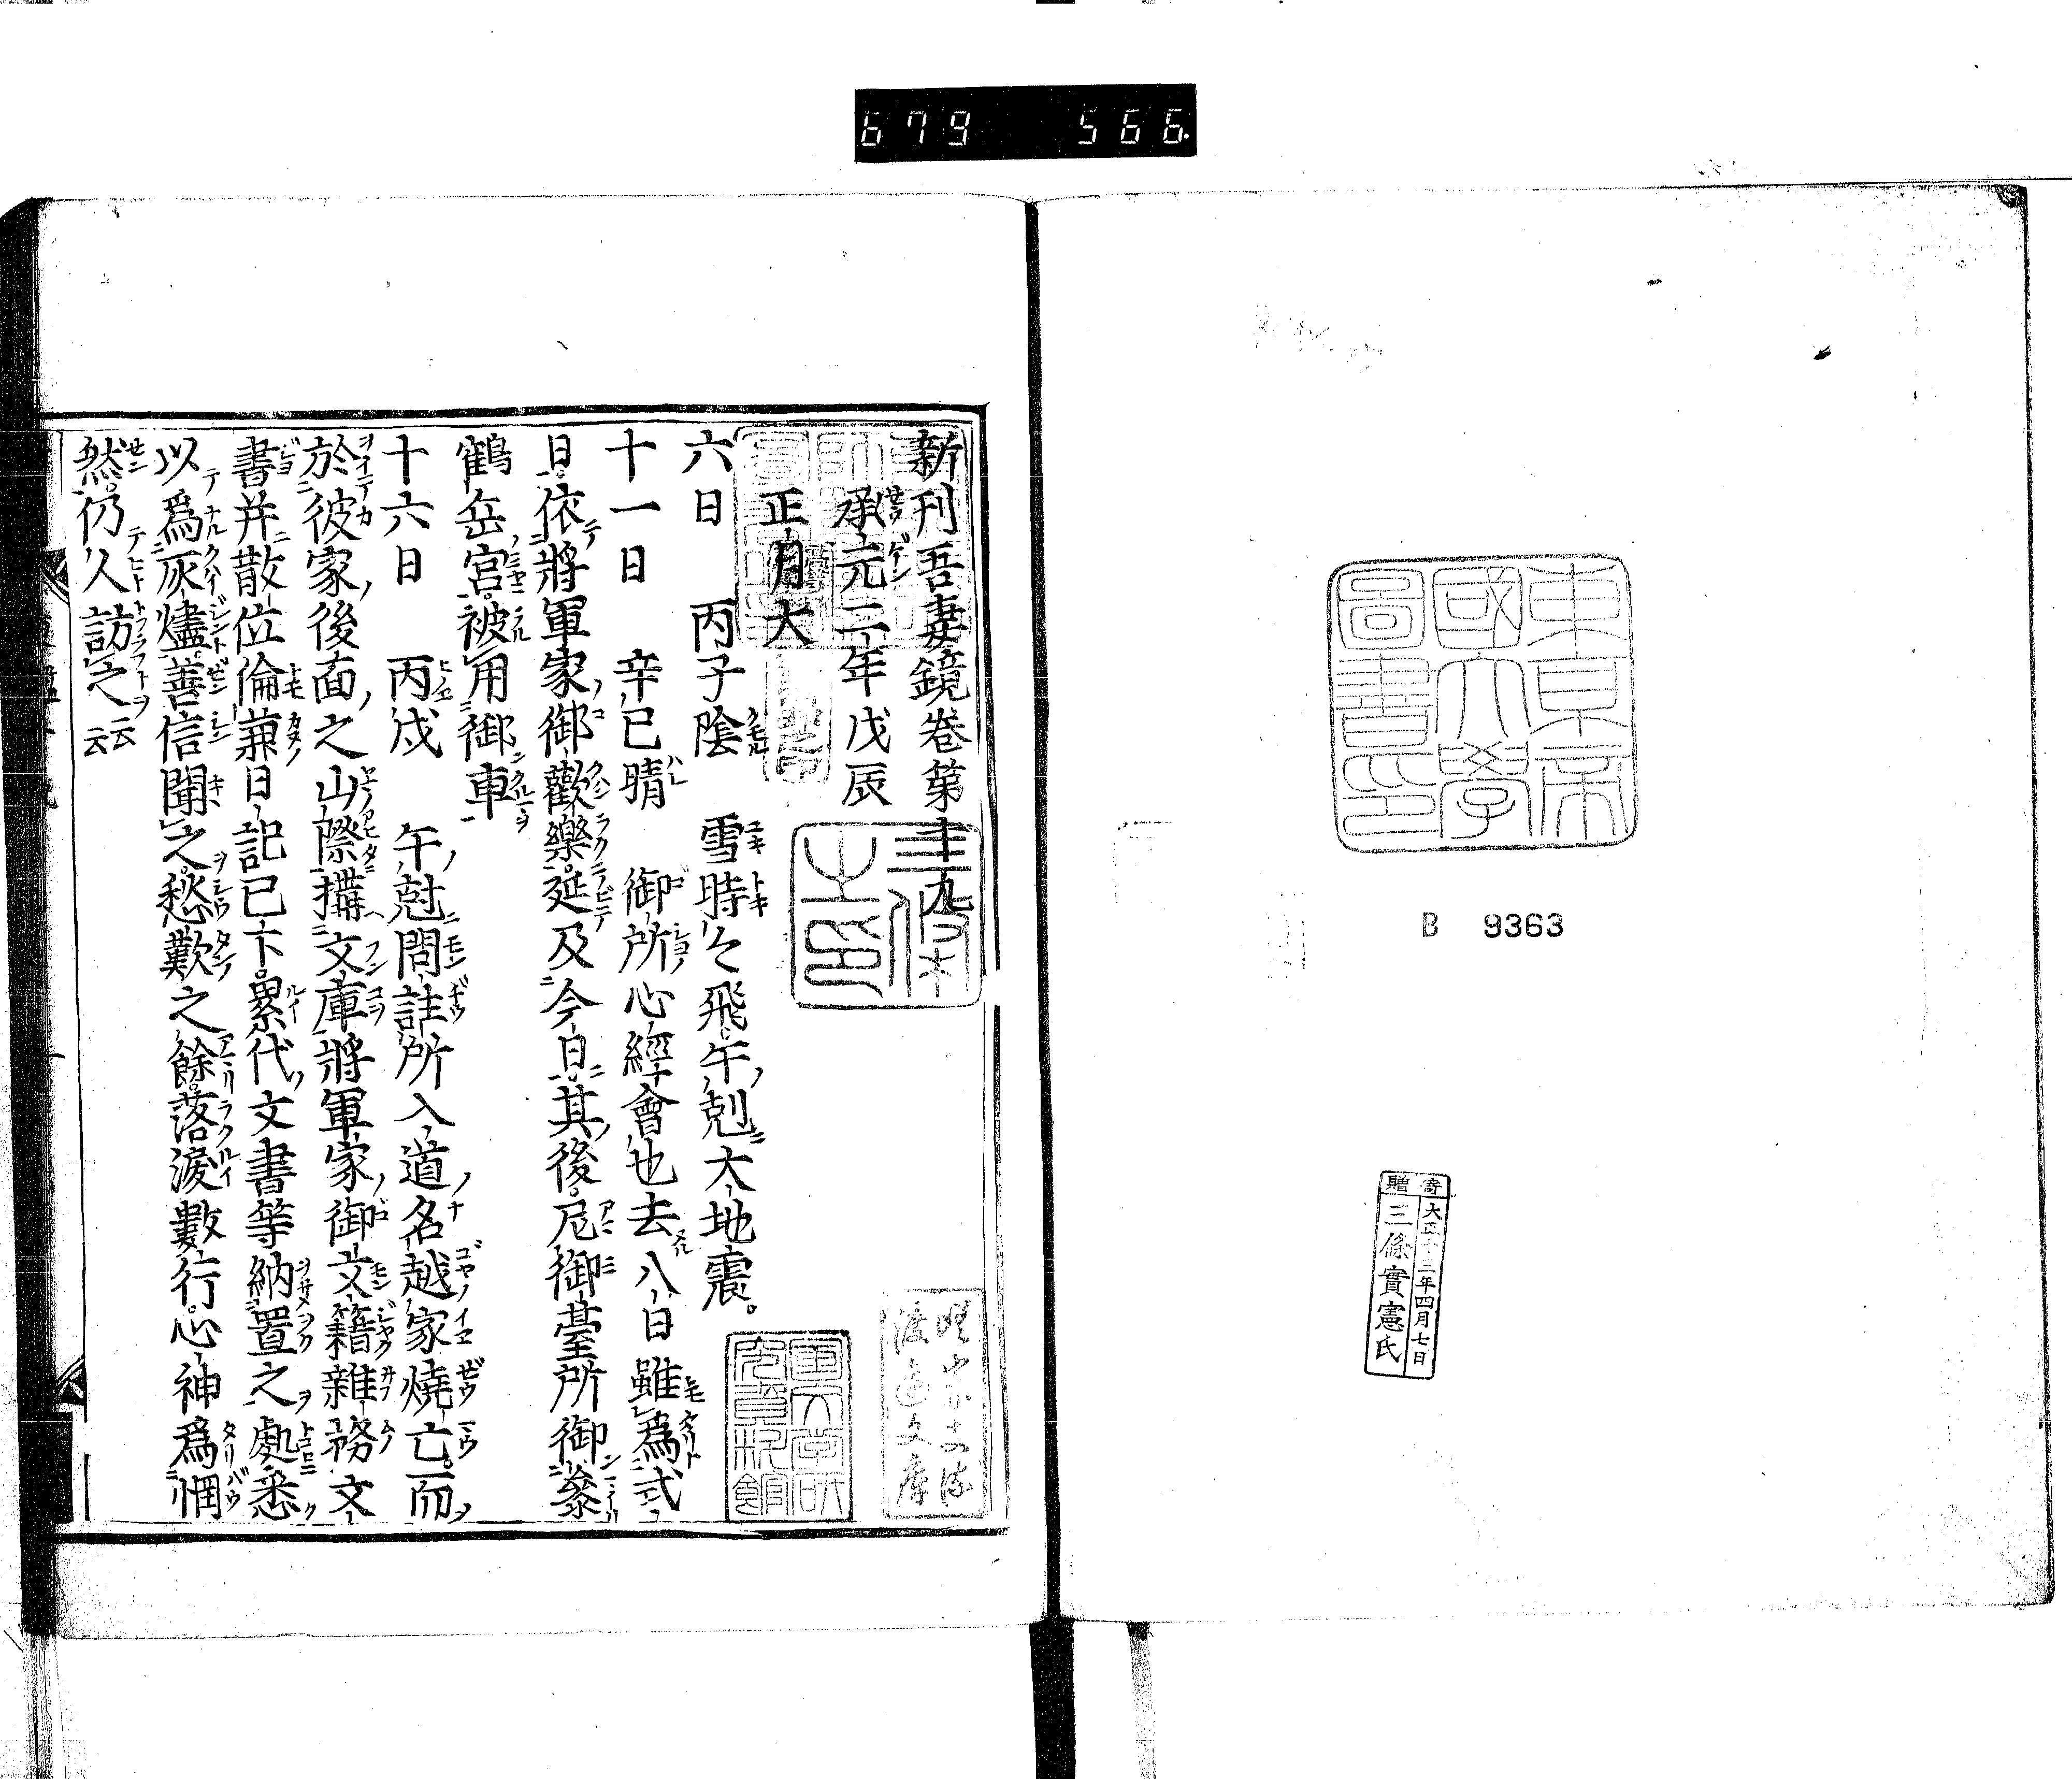 679 566
東京帝
國大學
圖書印
B 9363
寄贈
大正十二年四月七日
三條實憲氏
新刊吾妻鏡卷第十九
承元二年戊辰
正月大
六日 丙子陰 雪時〻飛午尅大地震。
十一日 辛巳晴 御所心經會也去八日雖爲式
日。依將軍家御歡樂。延及今日。其後。尼御臺所御參
鶴岳宮。被用御車
十六日 丙戌 午尅問註所入道名越家燒亡。而
於彼家後面之山際搆文庫將軍家御文籍雜務文
書并散位倫兼日記已下。累代文書等納置之處悉
以爲灰燼。善信聞之。愁歎之餘。落淚數行。心神爲惘
然。仍人訪之云云